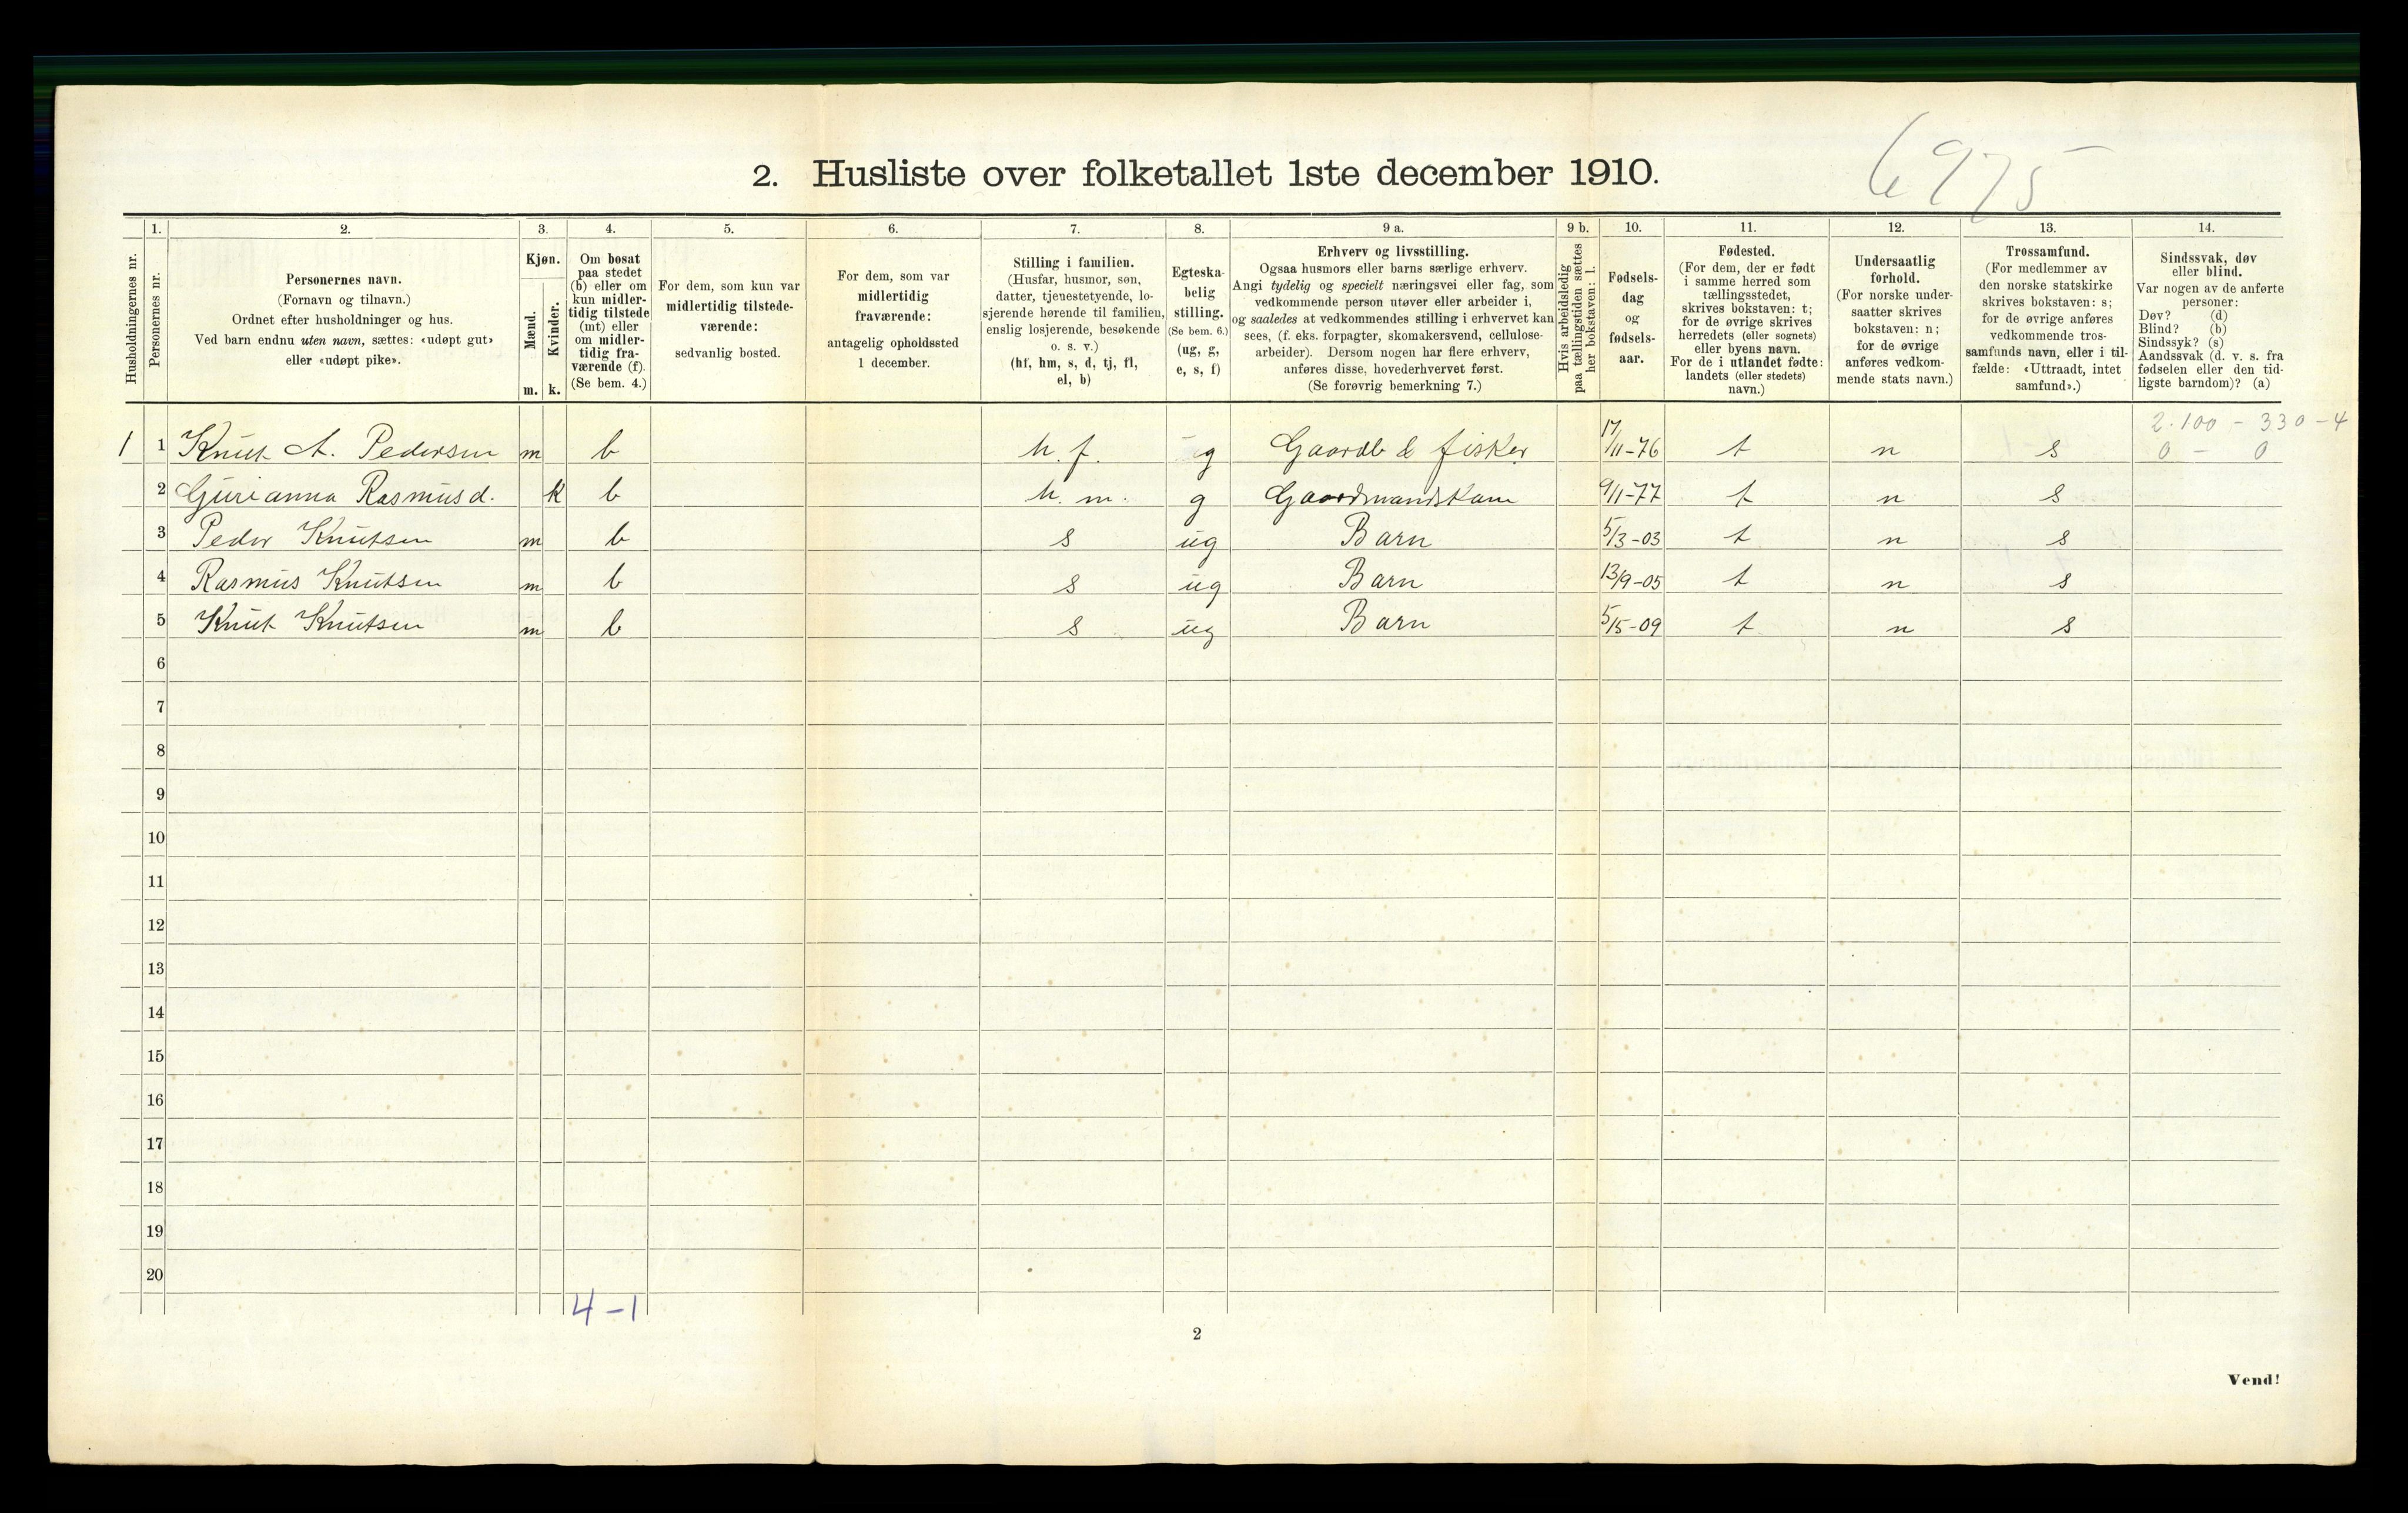 6975
2. Husliste over folketallet 1ste december 1910.
Husholdningernes nr.
1.
Personernes nr.
2.
Personernes navn.
(Fornavn og tilnavn.)
Ordnet efter husholdninger og hus.
Ved barn endnu uten navn, sættes: «udøpt gut»
eller «udøpt pike».
3.
Kjøn.
Mænd.
Kvinder.
m. k.
4.
Om bosat
paa stedet
(b) eller om
kun midler-
tidig tilstede
(mt) eller
om midler-
tidig fra-
værende (f).
(Se bem. 4.)
5.
For dem, som kun var
midlertidig tilstede-
værende:
sedvanlig bosted.
6.
For dem, som var
midlertidig
fraværende:
antagelig opholdssted
1 december.
7.
Stilling i familien.
(Husfar, husmor, søn,
datter, tjenestetyende, lo-
sjerende hørende til familien,
enslig losjerende, besøkende
o. s. v.)
(hf, hm, s, d, tj, fl,
el, b)
8.
Egteska-
belig
stilling.
(Se bem. 6.)
(ug, g,
e, s, f)
9 a.
Erhverv og livsstilling.
Ogsaa husmors eller barns særlige erhverv.
Angi tydelig og specielt næringsvei eller fag, som
vedkommende person utøver eller arbeider i,
og saaledes at vedkommendes stilling i erhvervet kan
sees, (f. eks. forpagter, skomakersvend, cellulose-
arbeider). Dersom nogen har flere erhverv,
anføres disse, hovederhvervet først.
(Se forøvrig bemerkning 7.)
9 b.
Hvis arbeidsledig
paa tællingstiden sættes
her bokstaven: l.
10.
Fødsels-
dag
og
fødsels-
aar.
11.
Fødested.
(For dem, der er født
i samme herred som
tællingsstedet,
skrives bokstaven: t;
for de øvrige skrives
herredets (eller sognets)
eller byens navn.
For de i utlandet fødte:
landets (eller stedets)
navn.)
12.
Undersaatlig
forhold.
(For norske under-
saatter skrives
bokstaven: n;
for de øvrige
anføres vedkom-
mende stats navn.)
13.
Trossamfund.
(For medlemmer av
den norske statskirke
skrives bokstaven: s;
for de øvrige anføres
vedkommende tros-
samfunds navn, eller i til-
fælde: «Uttraadt, intet
samfund».)
14.
Sindssvak, døv
eller blind.
Var nogen av de anførte
personer:
Døv? (d)
Blind? (b)
Sindssyk? (s)
Aandssvak (d. v. s. fra
fødselen eller den tid-
ligste barndom)? (a)
2.100 - 330 - 4
0 - 0
1 1 Knut A. Pedersen m b h. f. g Gaardb & fisker 17/11-76 t n s
2 Gurianna Rasmusd. k b h. m. g Gaardmandskone 9/11-77 t n s
3 Peder Knutsen m b s ug Barn 5/3-03 t n s
4 Rasmus Knutsen m b s ug Barn 13/9-05 t n s
5 Knut Knutsen m b s ug Barn 5/15-09 t n s
6
7
8
9
10
11
12
13
14
15
16
17
18
19
20
4-1
2
Vend!